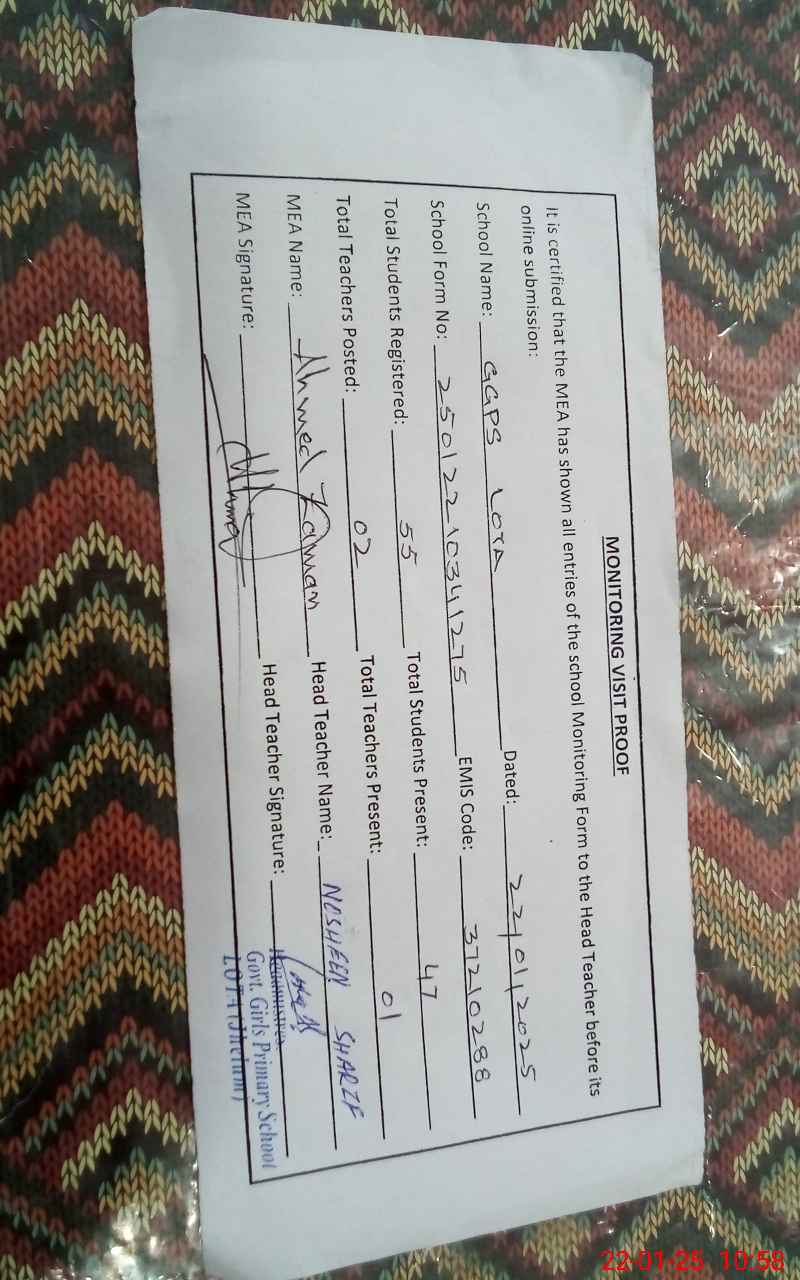 MONITORING VISIT PROOF
It is certified that the MEA has shown all entries of the school Monitoring Form to the Head Teacher before its
online submission:
School Name: GGPS LOTA Dated: 22/01/2025
School Form No: 25012210341275 EMIS Code: 37210288
Total Students Registered: 55 Total Students Present: 47
Total Teachers Posted: 02 Total Teachers Present: 01
MEA Name: Ahmed Zaman Head Teacher Name: NOSHEEN SHARIF
MEA Signature: Head Teacher Signature:
Headmistress
Govt. Girls Primary School
LOTA (Jhelum)
22-01-25 10:58